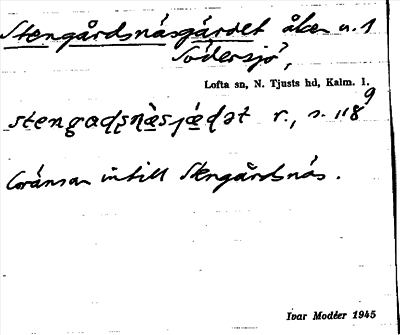 Stengårdsnäsgärdet åker u. 1
Södersjö,
Lofta sn, N. Tjusts hd, Kalm. l.
stengaɖʂnä̀sjǽḍət r., s. 118 9
Gränsar intill Stengårdsnäs.
Ivar Modéer 1945